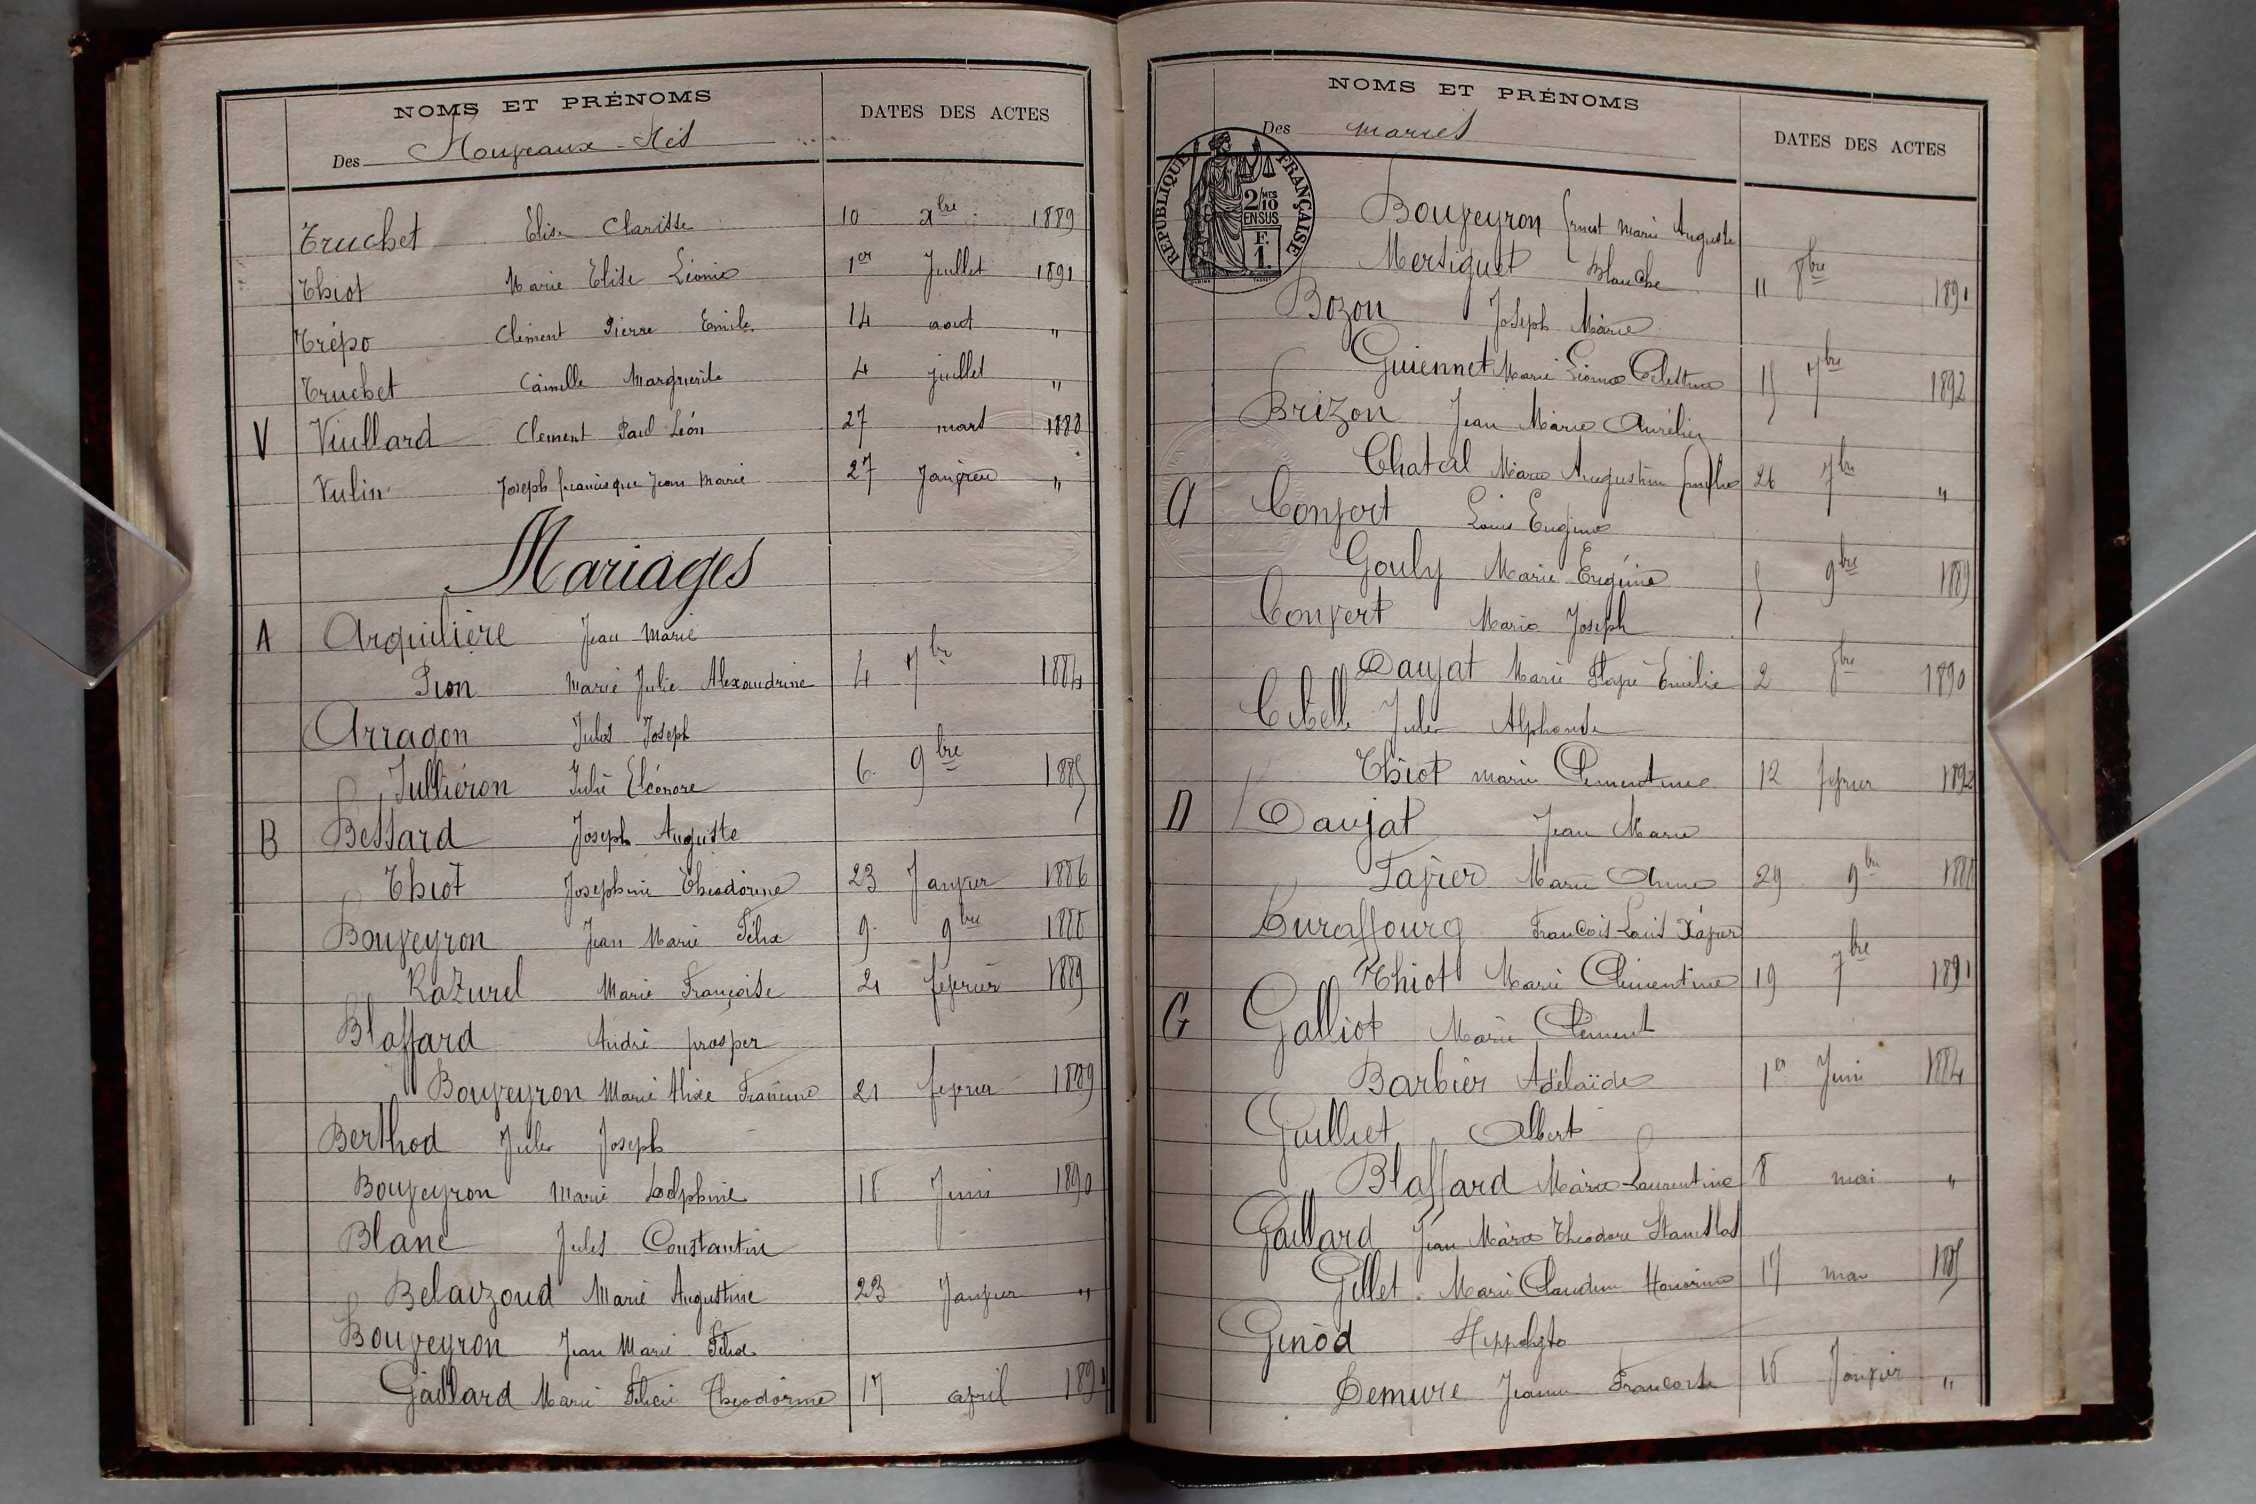 NOMS ET PRÉNOMS
DATES DES ACTES
Des Nouveaux-Nés
Truchet Elise Clarisse 10 xbre 1889
Thiot Marie Elise Léonie 1er Juillet 1891
Trépo Clément Pierre Emile 14 aout "
Truchet Camille Marguerite 4 juillet "
V Vuillard Clement Paul Léon 27 mars 1888
Vulin Joseph francisque Jean Marie 27 Janvier "
Mariages
A Arquilière Jean Marie
Pion Marie Julie Alexandrine 4 7bre 1884
Arragon Jules Joseph
Julliéron Julie Eléonore 6 9bre 1885
B Bessard Joseph Auguste
Thiot Josephine Théodorine 23 Janvier 1886
Bouveyron Jean Marie Félix 9 9bre 1888
Kazurel Marie Françoise 21 fevrier 1889
Blaffard André prosper
Bouveyron Marie Alixe Francine 21 fevrier 1889
Berthod Jules Joseph
Bouveyron Marie Delphine 18 Juin 1890
Blanc Jules Constantin
Belaizoud Marie Augustine 23 Janvier "
Bouveyron Jean Marie Félix
Gaillard Marie Théodorine 17 avril 1891
NOMS ET PRÉNOMS
DATES DES ACTES
Des mariés
RÉPUBLIQUE FRANÇAISE
2/10 MES
EN SUS
F.
1.
Bouveyron Ernest Marie Auguste
Mersiguet Blanche 11 8bre 1891
Bozon Joseph Marie
Guiennet Marie Léonie Célestine 15 7bre 1892
Brizon Jean Marie Aurélien
Chatal Marie Augustine 26 7bre "
C Convert Louis Eugène
Gouly Marie Eugénie 5 9bre 1889
Convert Marie Joseph
Daujat Marie Emilie 2 8bre 1890
Cibelle Jules Alphonse
Thiot marie Clementine 12 fevrier 1892
D Daujat Jean Marie
Tavier Marie 29 9bre 1888
Curaffourg François Louis Xavier
Thiot Marie Clémentine 19 7bre 1891
G Galliot Marie Clément
Barbier Adélaïde 1er Juin 1884
Guilliet Albert
Blaffard Marie Laurentine 8 mai "
Gaillard Jean Marie Théodore Stanislas
Gillet Marie Claudine Honorine 17 mai 1885
Ginod Hippolyte
Demure Jeanne Françoise 15 Janvier "